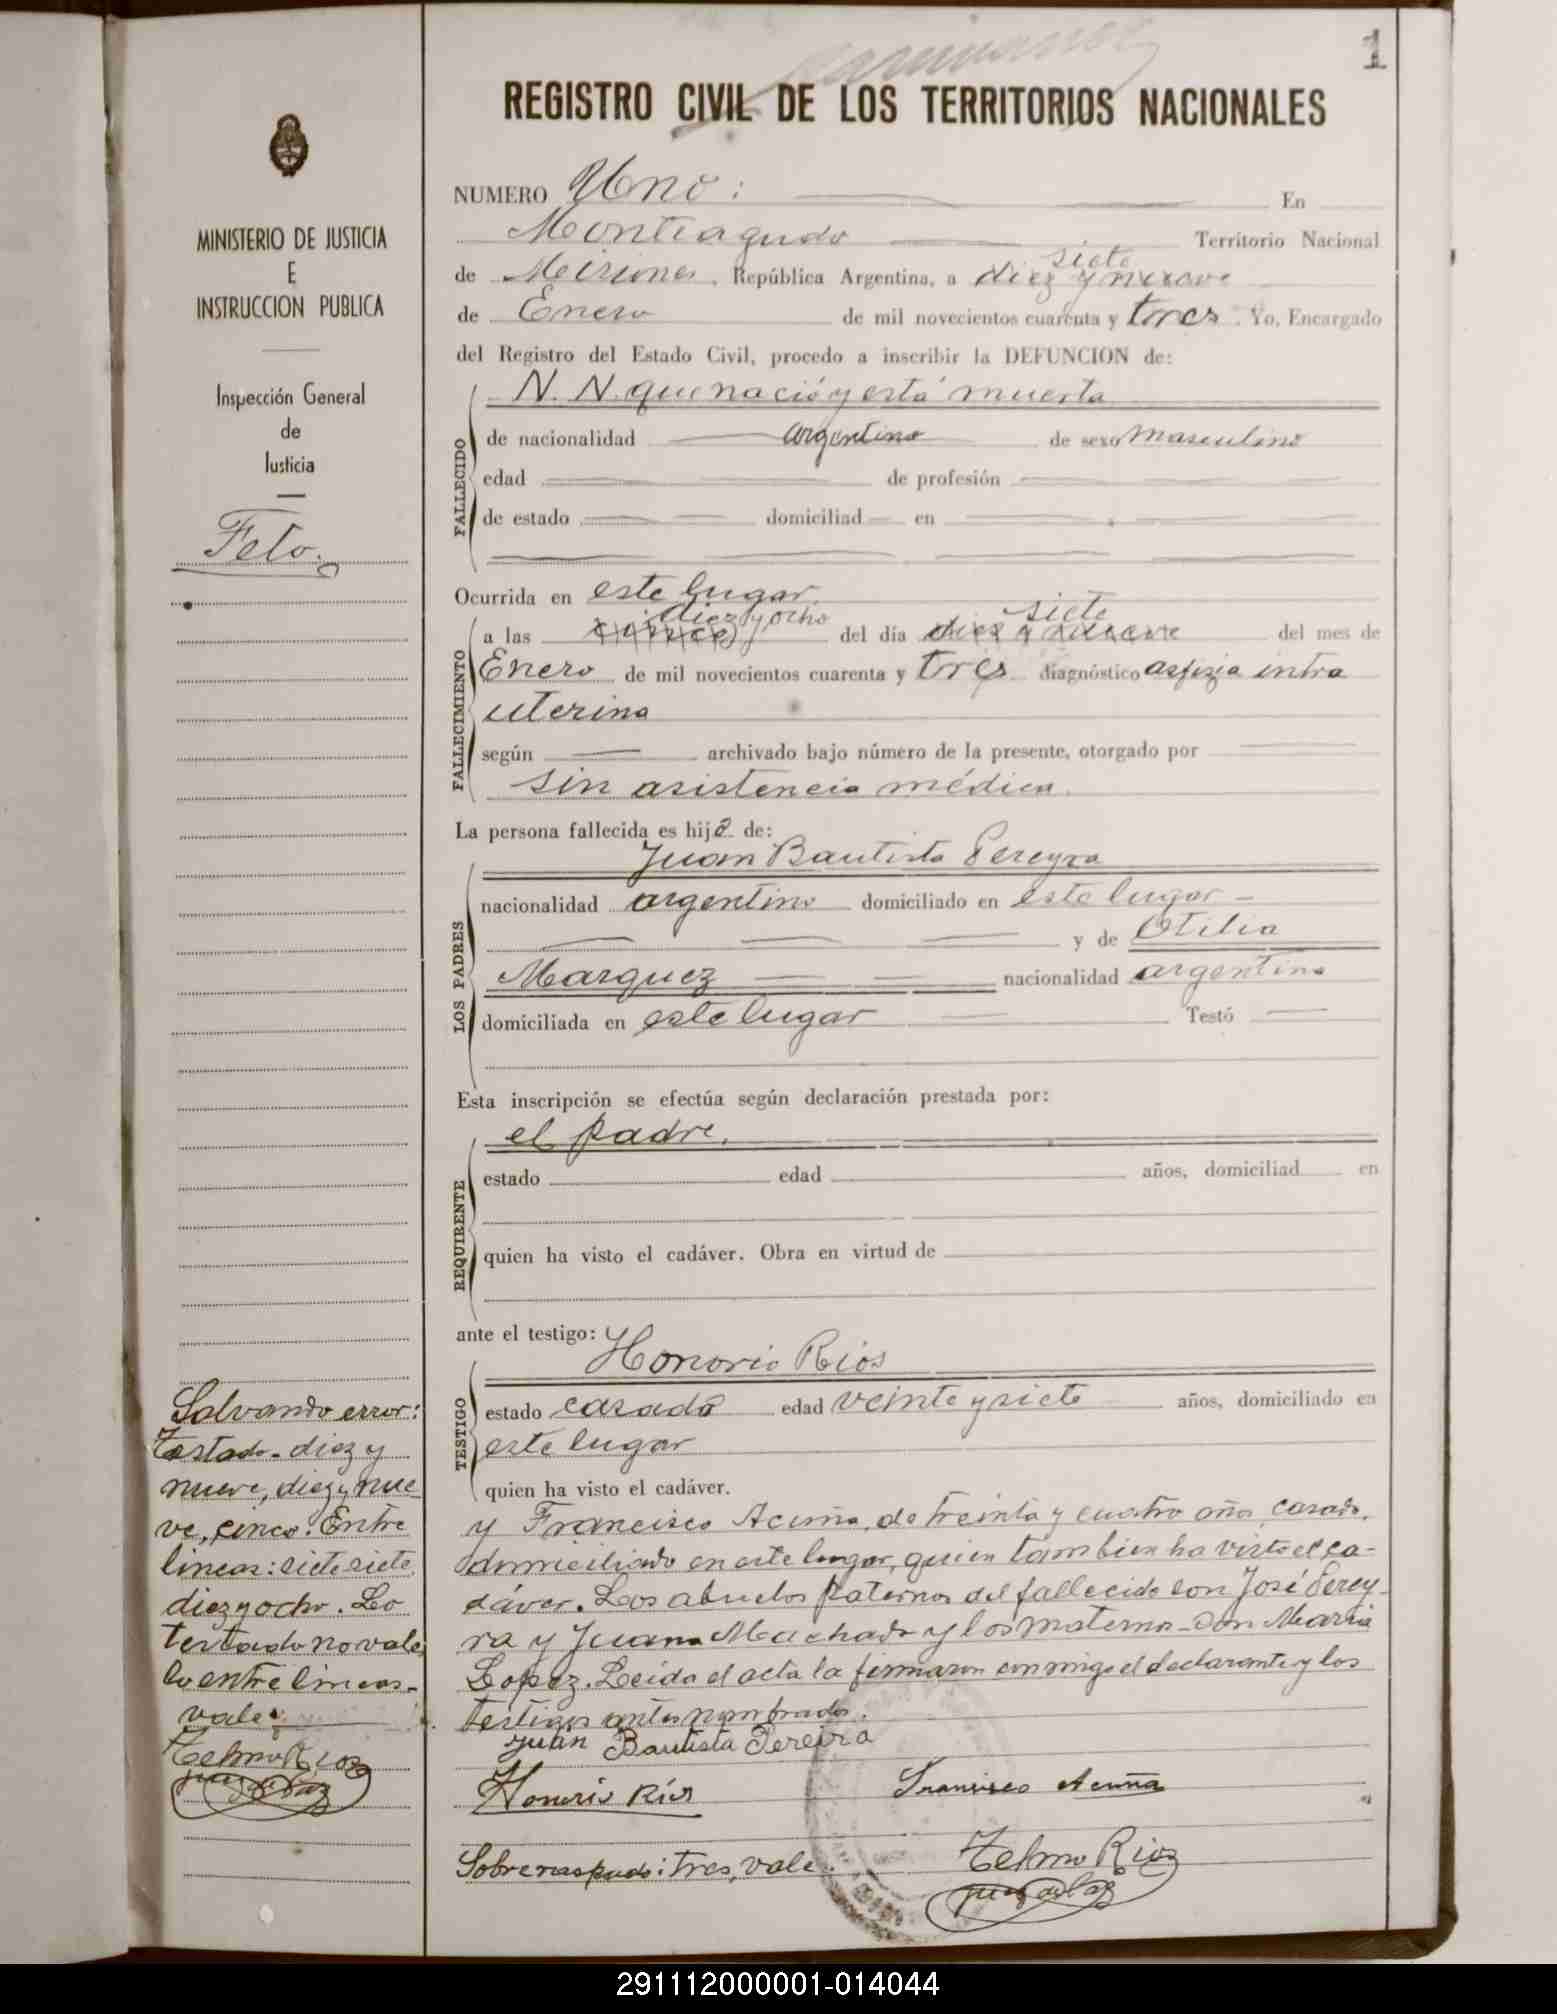 1
REGISTRO CIVIL DE LOS TERRITORIOS NACIONALES
MINISTERIO DE JUSTICIA
E
INSTRUCCION PUBLICA
Inspección General
de
Justicia
Feto.
NUMERO Uno: En
Monteagudo Territorio Nacional
siete
de Misiones, República Argentina, a diez y nueve
de Enero de mil novecientos cuarenta y tres. Yo, Encargado
del Registro del Estado Civil, procedo a inscribir la DEFUNCION de:
N. N. que nació y está muerta
FALLECIDO
de nacionalidad argentino de sexo masculino
edad de profesión
de estado domiciliad en
Ocurrida en este lugar.
diez y ocho siete
FALLECIMIENTO
a las cinco del día diez y nueve del mes de
Enero de mil novecientos cuarenta y tres diagnóstico asfixia intra
uterina
según archivado bajo número de la presente, otorgado por
sin asistencia médica.
La persona fallecida es hijo de:
Juan Bautista Pereyra
LOS PADRES
nacionalidad argentino domiciliado en este lugar
y de Otilia
Marquez nacionalidad argentina
domiciliada en este lugar Testó
Esta inscripción se efectúa según declaración prestada por:
el padre.
REQUIRENTE
estado edad años, domiciliad en
quien ha visto el cadáver. Obra en virtud de
ante el testigo:
Honorio Rios
TESTIGO
estado casado edad veinte y siete años, domiciliado en
este lugar
quien ha visto el cadáver.
y Francisco Acuña, de treinta y cuatro años, casado,
domiciliado en este lugar, quien tambien ha visto el ca-
dáver. Los abuelos paternos del fallecido son José Perey-
ra y Juana Machado y los maternos son Maria
Lopez. Leida el acta la firmaron conmigo el declarante y los
testigos antes nombrados.
Juan Bautista Pereira
Honorio Ríos Francisco Acuña
Sobreraspado: tres, vale. Telmo Rios
juez de Paz
Salvando error:
Testado diez y
nueve, diez y nue
ve, cinco. Entre
lineas: siete siete
diez y ocho. Lo
testado no vale,
lo entre lineas
vale.
Telmo Rios
juez de Paz
291112000001-014044